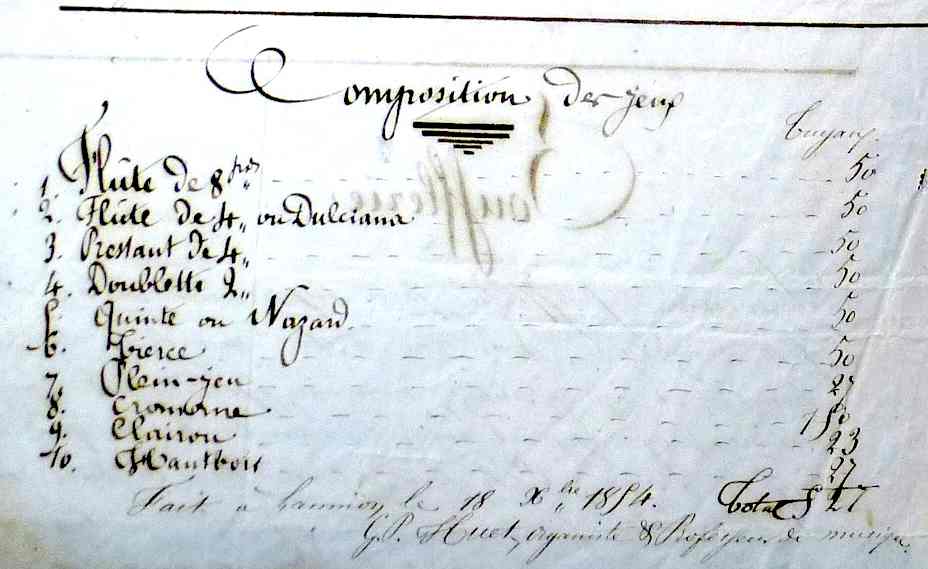 Composition des jeux
tuyaux.
1. Flûte de 8 pieds 50
2. Flûte de 4 " ou Dulciana 50
3. Prestant de 4 " 50
4. Doublette 2 " 50
5. Quinte ou Nazard. 50
6. Tierce 50
7. Plein-jeu 27
8. Cromorne 150
9. Clairon 23
10. Hautbois 27
Fait à Lannion le 18 Xbre 1854. Total 527
G.P. Huet, organiste & Professeur de musique.